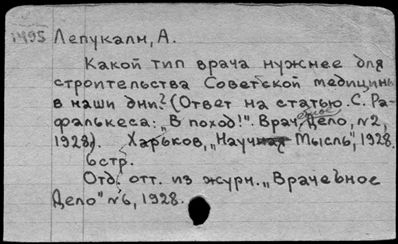 1495 Лепукалн, А.
Какой тип врача нужнее для
строительства Советской медицины
в наши дни? (Ответ на статью С. Ра-
фалькеса: „В поход!". Врач. Дело, №2,
1928). Харьков, „Научная Мысль", 1928.
6 стр.
Отд. отт. из журн. „Врачебное
Дело" №6, 1928.